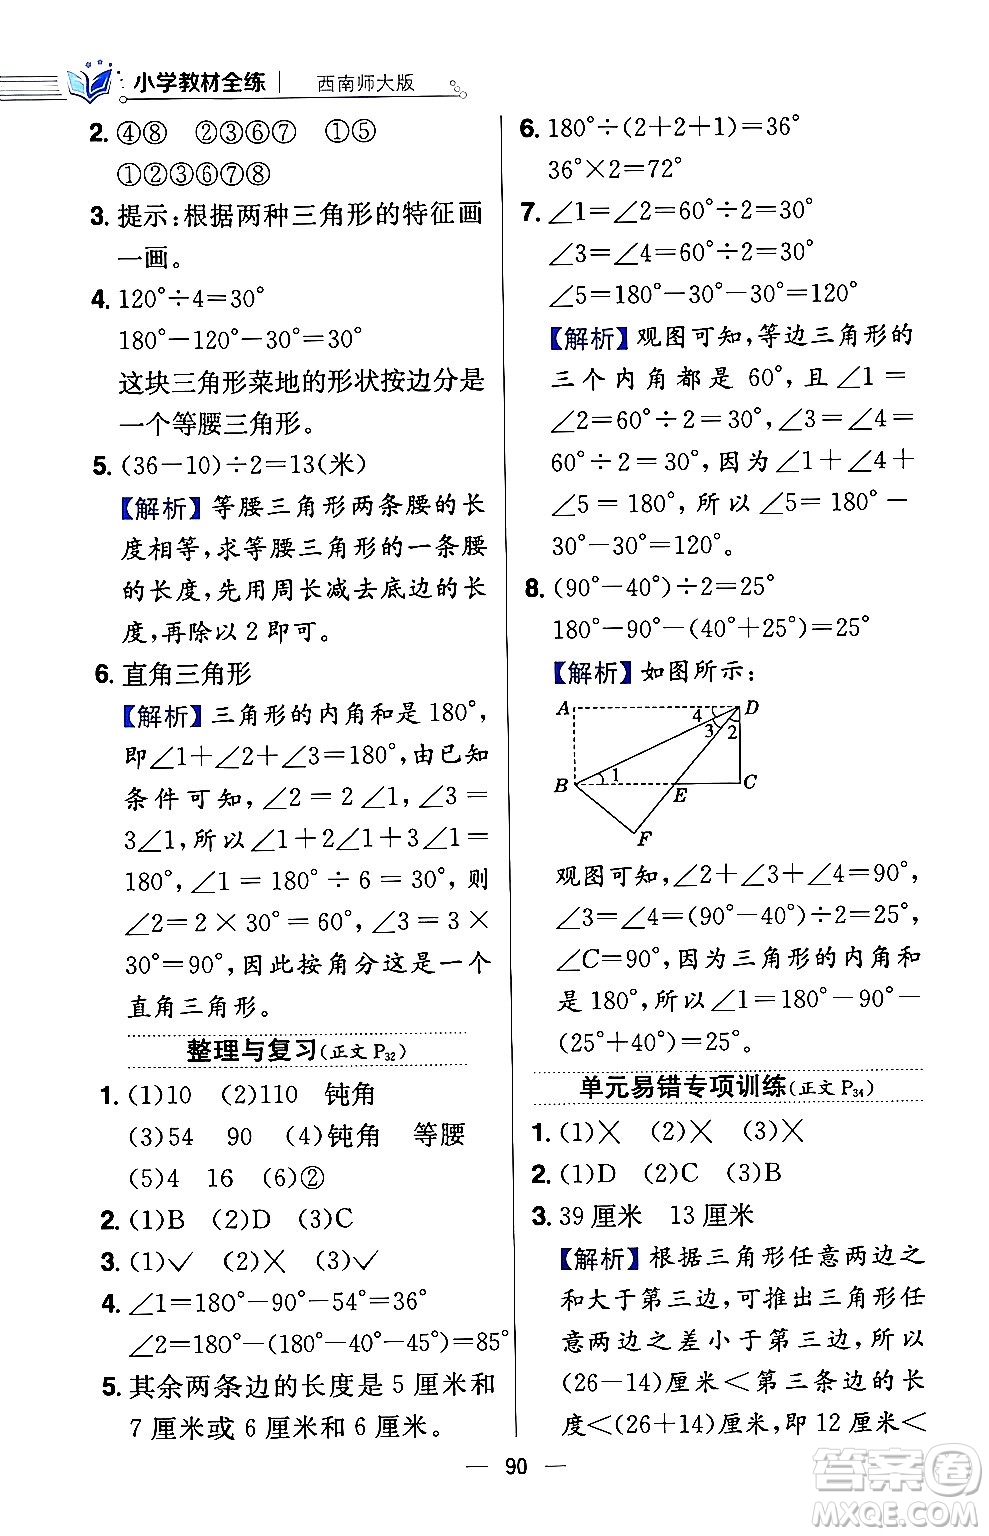 小学教材全练 西南师大版
2. ④⑧ ②③⑥⑦ ①⑤
①②③⑥⑦⑧
3. 提示:根据两种三角形的特征画
一画。
4. 120°÷4=30°
180°-120°-30°=30°
这块三角形菜地的形状按边分是
一个等腰三角形。
5. (36-10)÷2=13(米)
【解析】等腰三角形两条腰的长
度相等,求等腰三角形的一条腰
的长度,先用周长减去底边的长
度,再除以2即可。
6. 直角三角形
【解析】三角形的内角和是180°,
即∠1+∠2+∠3=180°,由已知
条件可知,∠2=2∠1,∠3=
3∠1,所以∠1+2∠1+3∠1=
180°,∠1=180°÷6=30°,则
∠2=2×30°=60°,∠3=3×
30°=90°,因此按角分这是一个
直角三角形。
整理与复习(正文P32)
1. (1)10 (2)110 钝角
(3)54 90 (4)钝角 等腰
(5)4 16 (6)②
2. (1)B (2)D (3)C
3. (1)✓ (2)× (3)✓
4. ∠1=180°-90°-54°=36°
∠2=180°-(180°-40°-45°)=85°
5. 其余两条边的长度是5厘米和
7厘米或6厘米和6厘米。
6. 180°÷(2+2+1)=36°
36°×2=72°
7. ∠1=∠2=60°÷2=30°
∠3=∠4=60°÷2=30°
∠5=180°-30°-30°=120°
【解析】观图可知,等边三角形的
三个内角都是60°,且∠1=
∠2=60°÷2=30°,∠3=∠4=
60°÷2=30°,因为∠1+∠4+
∠5=180°,所以∠5=180°-
30°-30°=120°。
8. (90°-40°)÷2=25°
180°-90°-(40°+25°)=25°
【解析】如图所示:
A 4 D
3 2
B 1 E C
F
观图可知,∠2+∠3+∠4=90°,
∠3=∠4=(90°-40°)÷2=25°,
∠C=90°,因为三角形的内角和
是180°,所以∠1=180°-90°-
(25°+40°)=25°。
单元易错专项训练(正文P34)
1. (1)× (2)× (3)×
2. (1)D (2)C (3)B
3. 39厘米 13厘米
【解析】根据三角形任意两边之
和大于第三边,可推出三角形任
意两边之差小于第三边,所以
(26-14)厘米<第三条边的长
度<(26+14)厘米,即12厘米<
90
答案圈
MXQE.COM